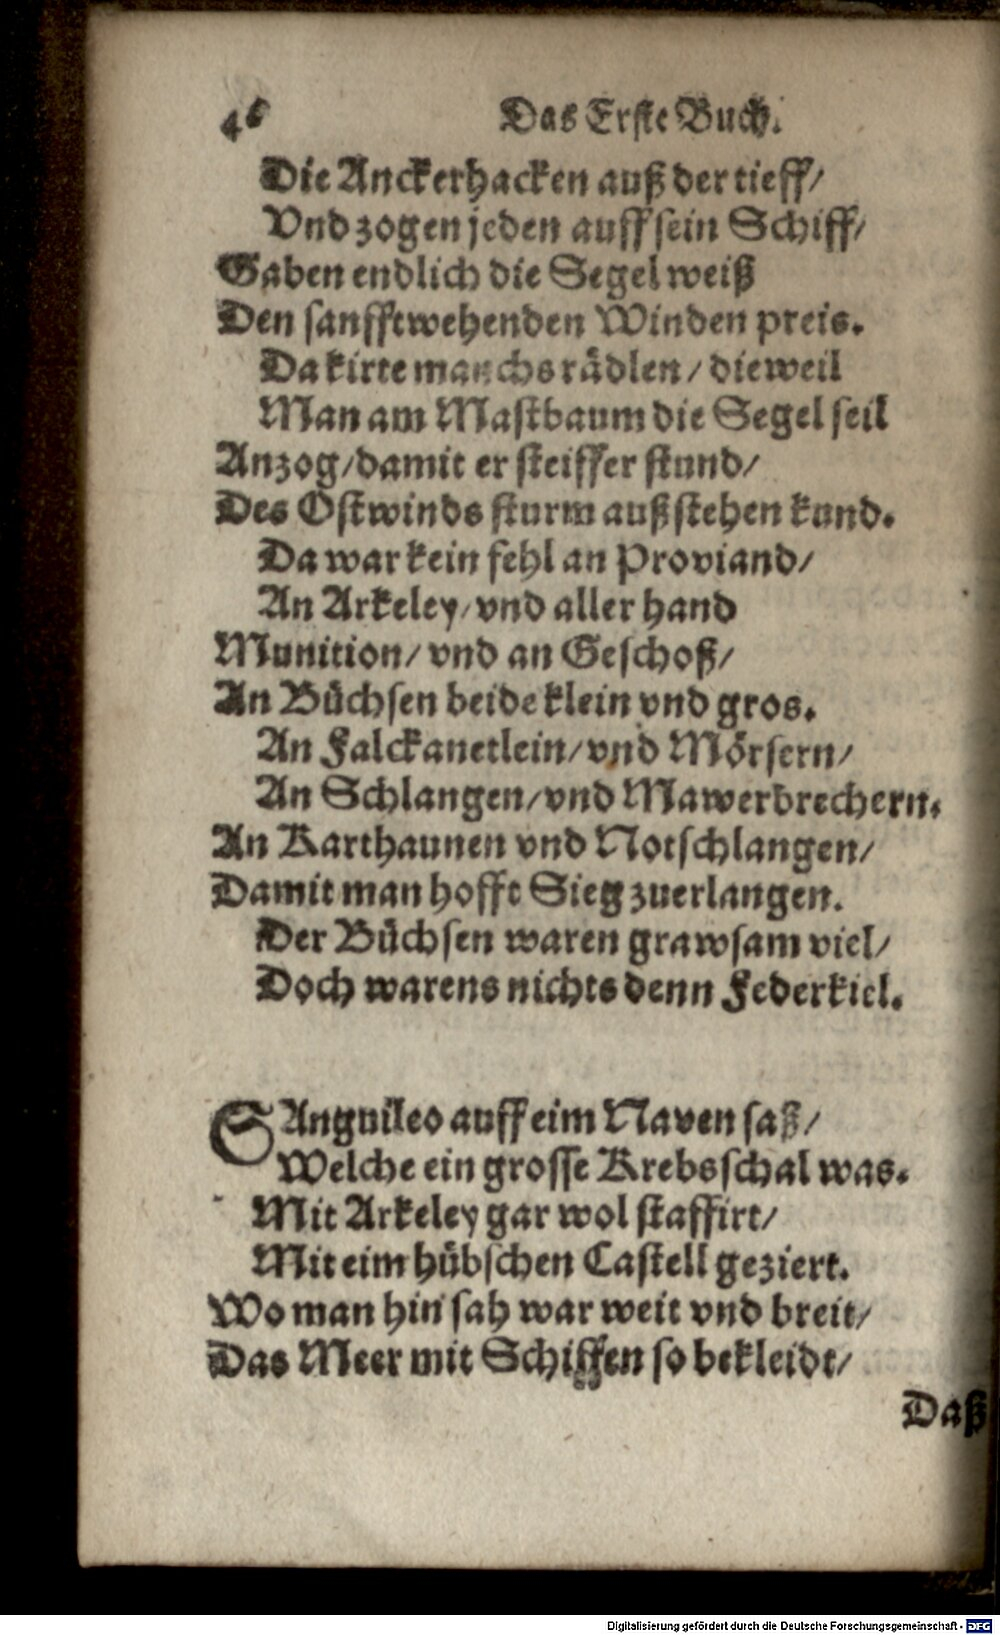 46 Das Erste Buch.
Die Anckerhacken auß der tieff/
Vnd zogen jeden auff sein Schiff/
Gaben endlich die Segel weiß
Den sanfftwehenden Winden preis.
Da kirte manchs rädlen/ dieweil
Man am Mastbaum die Segel seil
Anzog/ damit er steiffer stund/
Des Ostwinds sturm außstehen kund.
Da war kein fehl an Proviand/
An Arkeley/ vnd aller hand
Munition/ vnd an Geschoß/
An Büchsen beide klein vnd gros.
An Falckanetlein/ vnd Mörsern/
An Schlangen/ vnd Mawerbrechern.
An Karthaunen vnd Notschlangen/
Damit man hofft Sieg zuerlangen.
Der Büchsen waren grawsam viel/
Doch warens nichts denn Federkiel.
SAnguileo auff eim Naven saß/
Welche ein grosse Krebsschal was.
Mit Arkeley gar wol staffirt/
Mit eim hübschen Castell geziert.
Wo man hin sah war weit vnd breit/
Das Meer mit Schiffen so bekleidt/
Daß
Digitalisierung gefördert durch die Deutsche Forschungsgemeinschaft - DFG